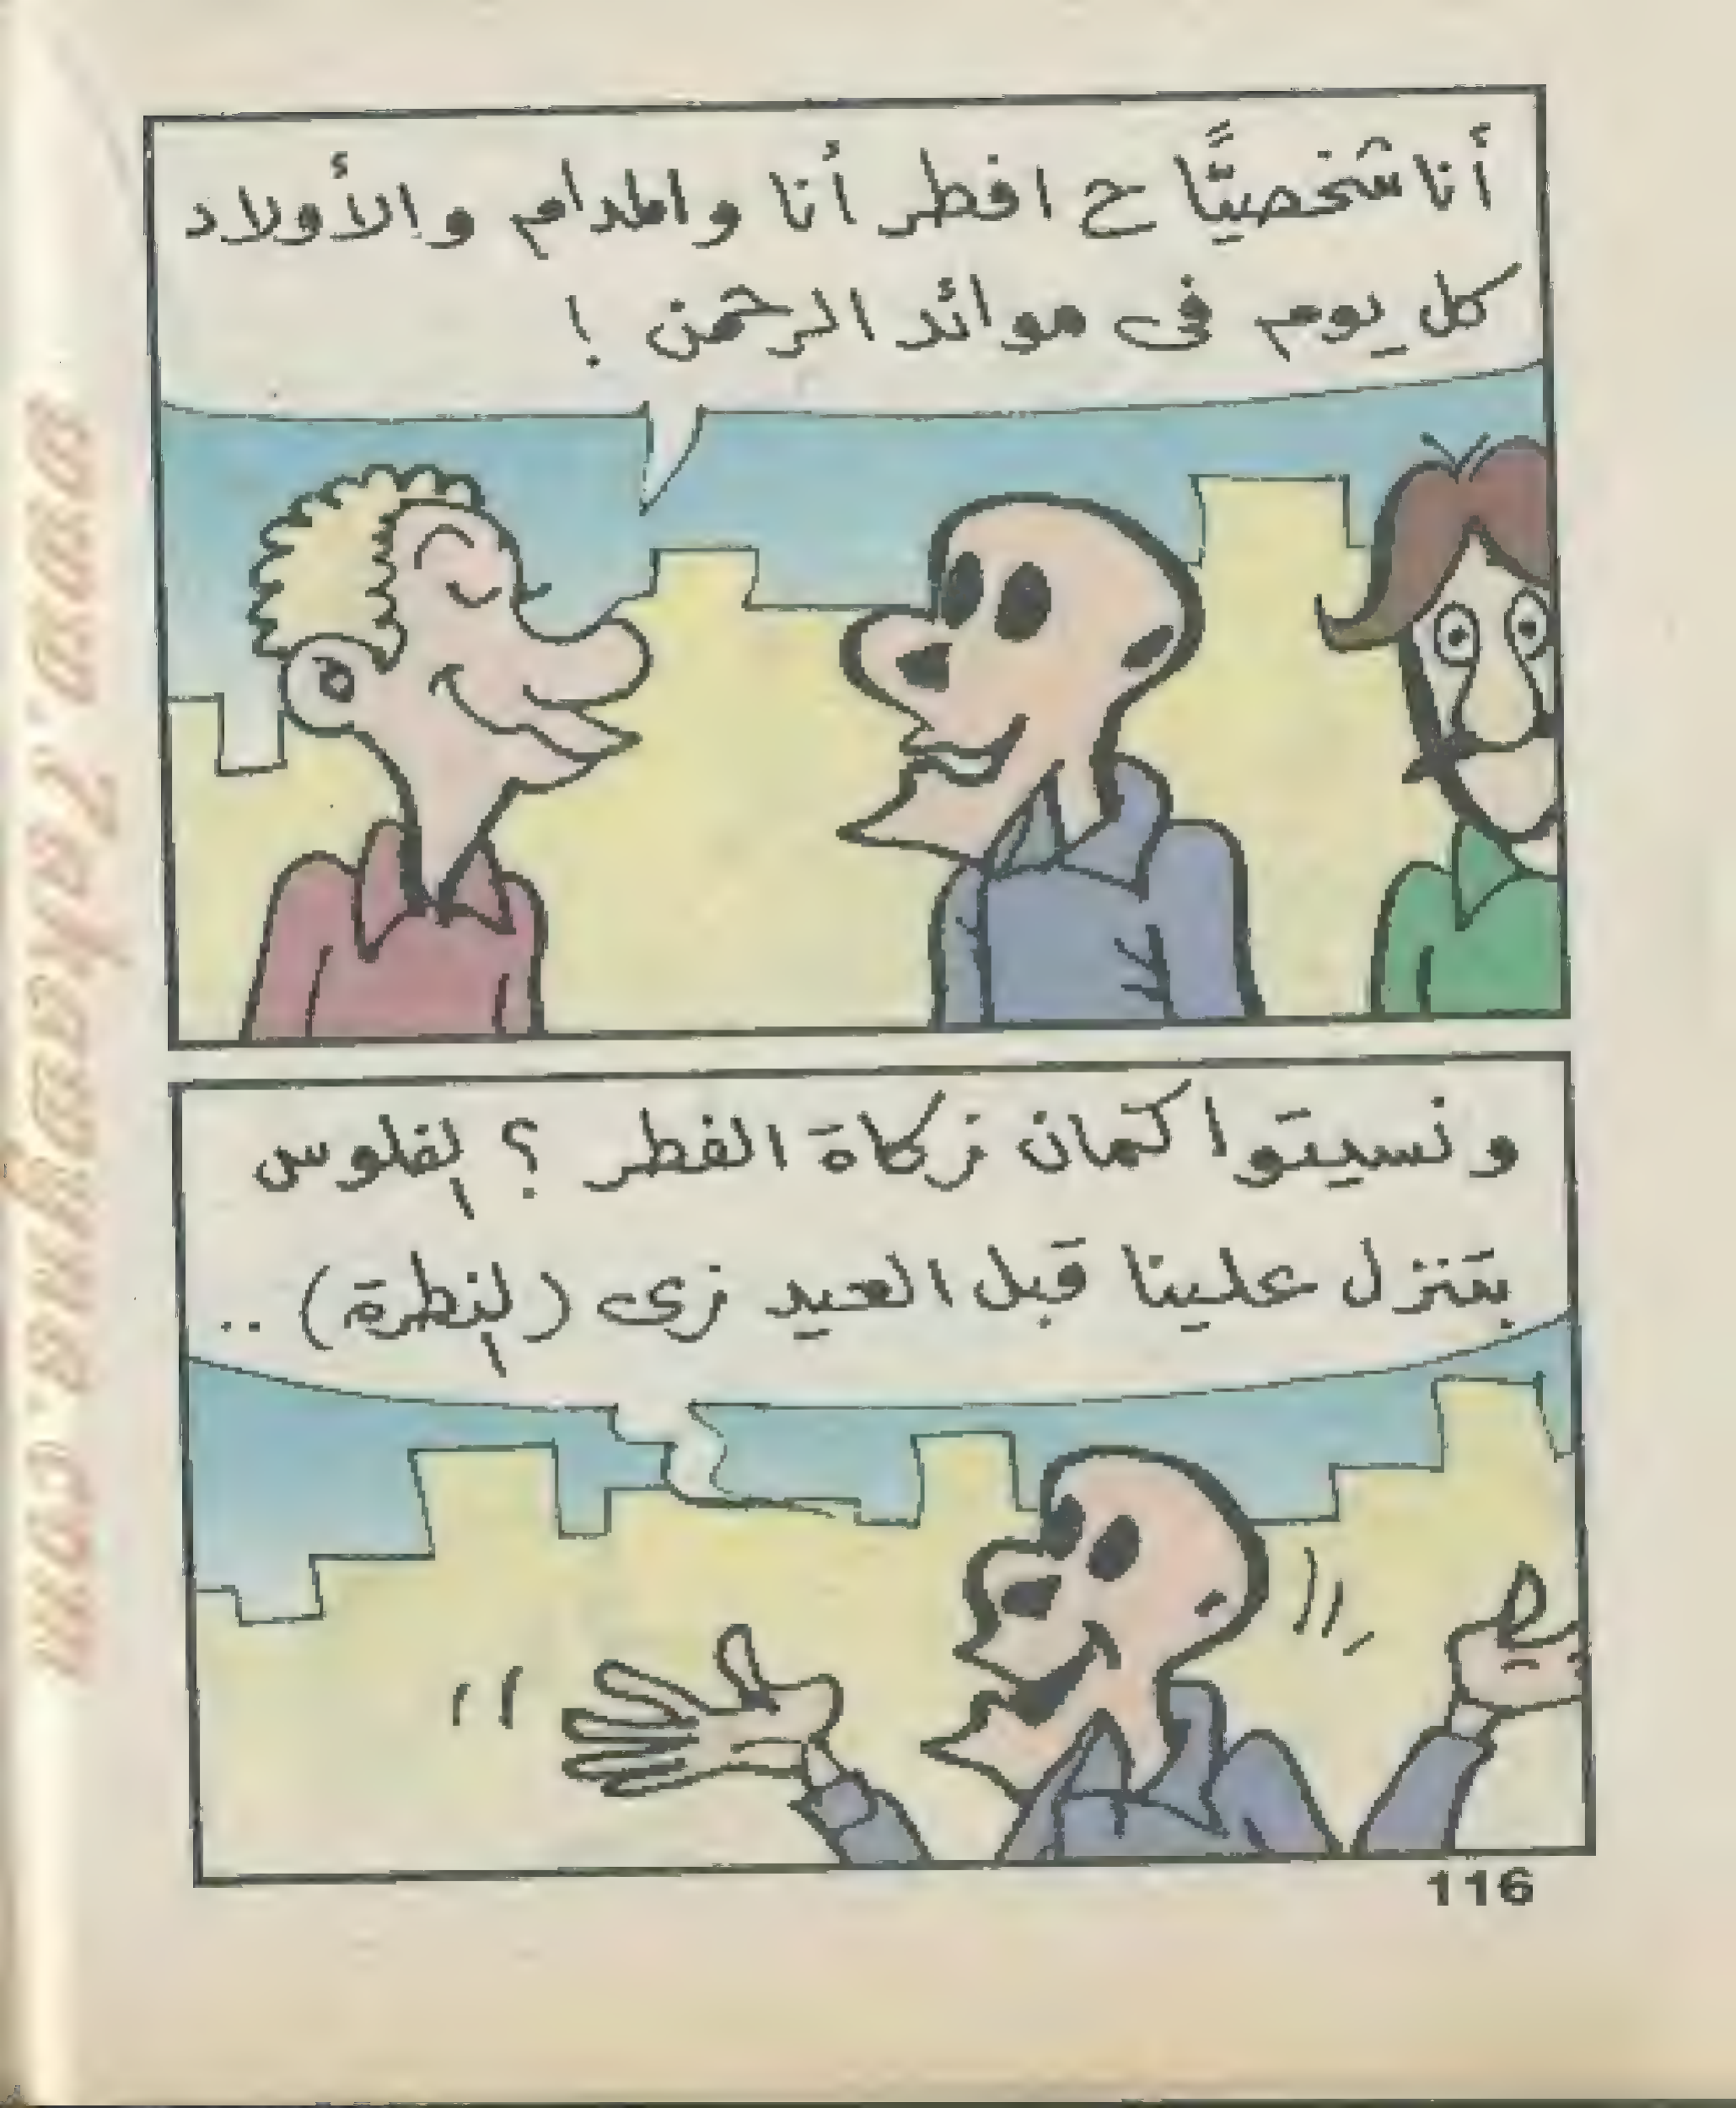 أنا شخصيًّا ح افطر أنا والمدام والأولاد
كل يوم فى موائد الرحمن !
ونسيتوا كمان زكاة الفطر ؟ الفلوس
بتنزل علينا قبل العيد زى (المطرة) ..
116